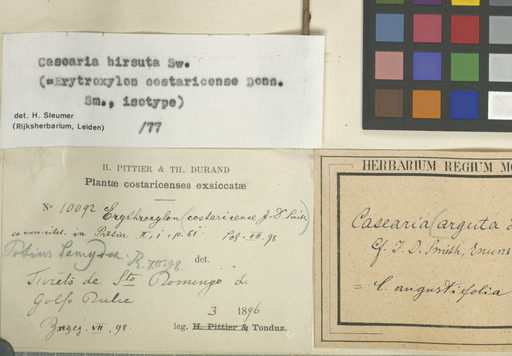 Casearia hirsuta Sw.
(=Erytroxylon costaricense Donn.
Sm., isotype)
det. H. Sleumer
(Rijksherbarium, Leiden)
/77
H. PITTIER & TH. DURAND
Plantæ costaricenses exsiccatæ
No 10092 Erythroxylon (costaricense J. D. Smith)
in Prtiær II, i, p. 61.
Potius Samydea XII.98. det.
Sto Domingo de
Golfo Dulce
3 1896
VII. 98. leg. H. Pittier & Tonduz.
HERBARIUM REGIUM MO
Casearia (arguta
Cf. J. D. Smith, Enum
= C. angustifolia